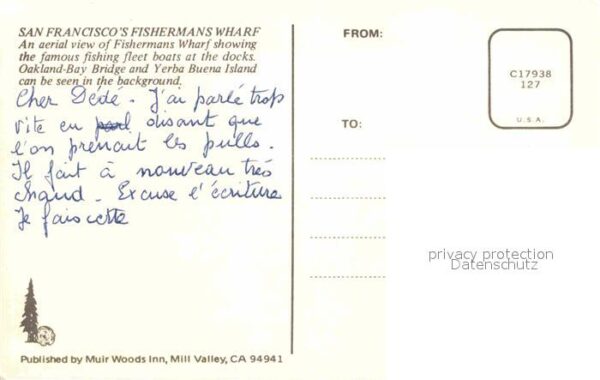 SAN FRANCISCO'S FISHERMANS WHARF
An aerial view of Fishermans Wharf showing
the famous fishing fleet boats at the docks.
Oakland-Bay Bridge and Yerba Buena Island
can be seen in the background.
Cher Dédé. J'ai parlé trop
vite en disant que
l'on prenait les pulls.
Il fait à nouveau très
chaud. Excuse l'écriture
Je fais cette
FROM:
C17938
127
U.S.A.
TO:
privacy protection
Datenschutz
Published by Muir Woods Inn, Mill Valley, CA 94941